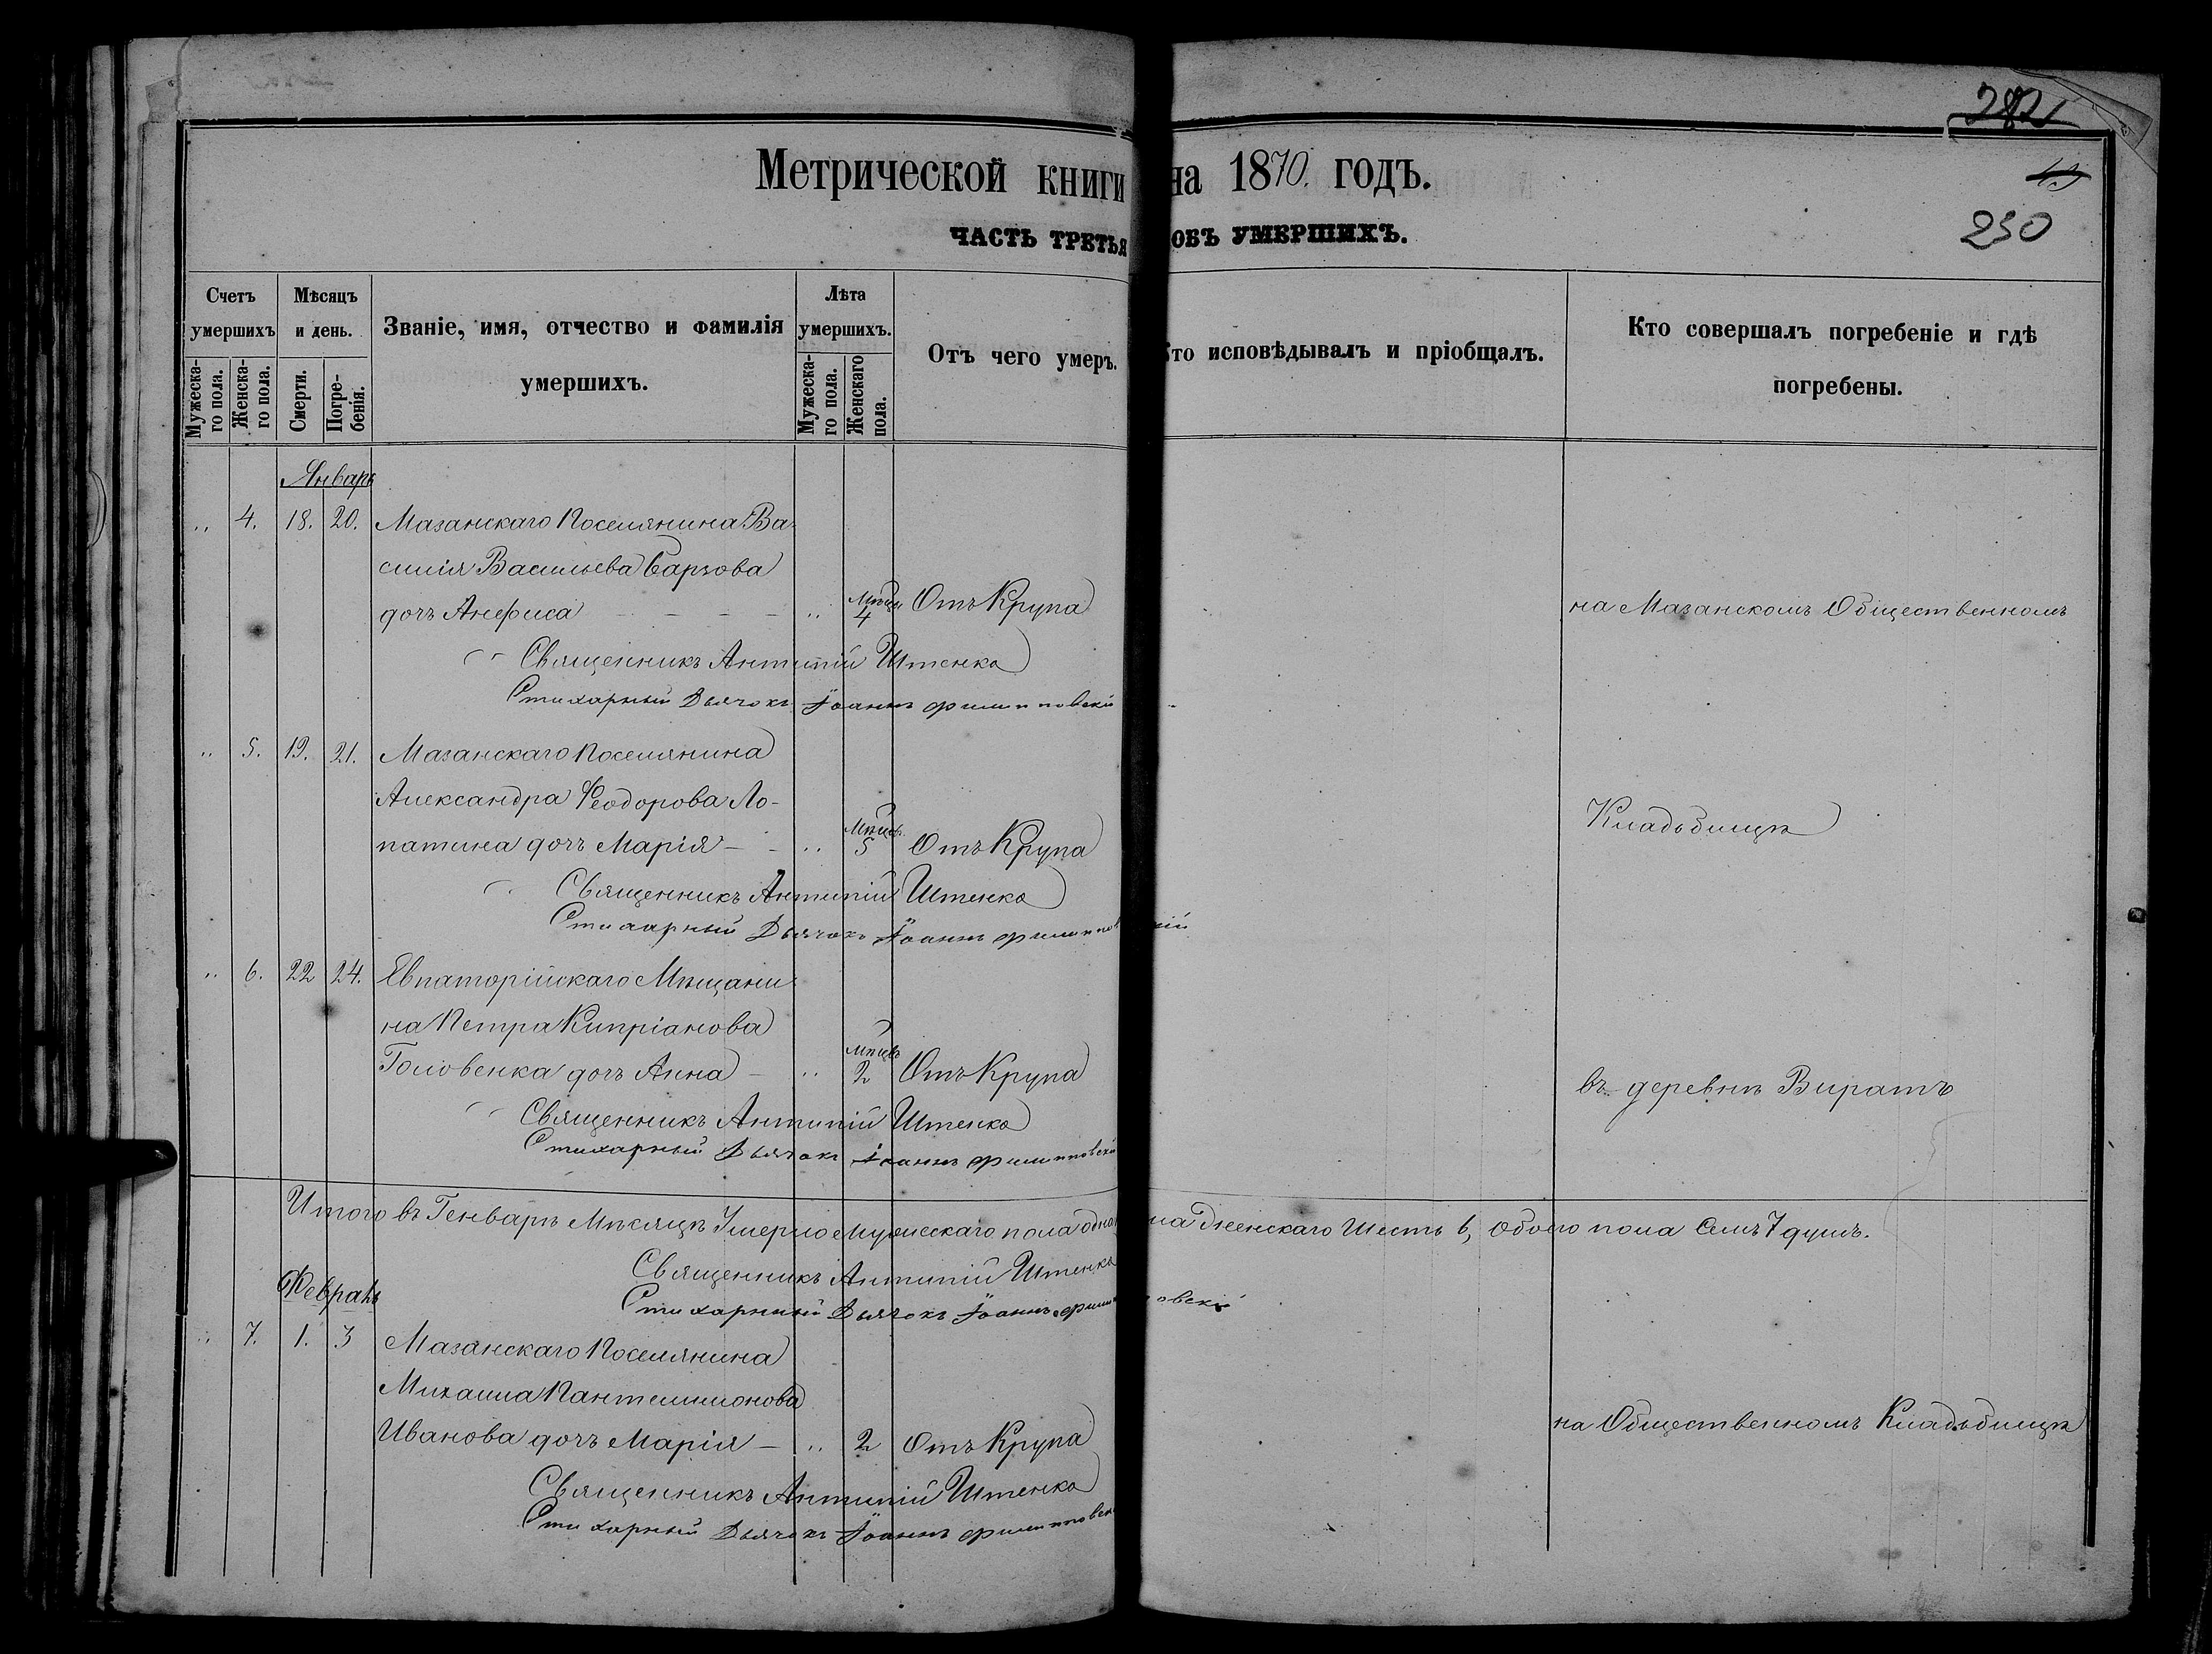 282
Метрической книги на 1870. годъ.
19
ЧАСТЬ ТРЕТЬЯ ОБЪ УМЕРШИХЪ.
250
Счетъ умершихъ
Мужеска-го пола.
Женска-го пола.
Мѣсяцъ и день.
Смерти.
Погре-бенія.
Званіе, имя, отчество и фамилія
умершихъ.
Лѣта умершихъ.
Мужеска-го пола.
Женскаго пола.
Отъ чего умеръ.
Кто исповѣдывалъ и пріобщалъ.
Кто совершалъ погребеніе и гдѣ
погребены.
Январь
„ 4. 18. 20. Мазанскаго Поселянина Ва-
силія Васильева
дочь Анфиса „ Мѣсяц. 4 Отъ Крупа на Мазанскомъ Общественномъ
Священникъ Антипій Штенко
Стихарный Дьячокъ Іоаннъ Филипповскій
„ 5. 19. 21. Мазанскаго Поселянина
Александра Ѳеодорова Ло-
патина дочь Марія - - „ Мѣсяц. 5 Отъ Крупа Кладьбищѣ
Священникъ Антипій Штенко
Стихарный Дьячокъ Іоаннъ Филипповскій
„ 6. 22 24. Евпаторійскаго Мѣщани-
на Петра Кипріанова
Головенка дочь Анна - „ Мѣсяц. 2 Отъ Крупа въ деревнѣ Виратъ
Священникъ Антипій Штенко
Стихарный Дьячокъ Іоаннъ Филипповскій
Итого въ Генварѣ Мѣсяцѣ Умерло Мужескаго пола а Женскаго Шесть 6, Обоего пола Семь 7 душъ.
Священникъ Антипій Штенко
Стихарный Дьячокъ Іоаннъ Филипповскій
Февраль
„ 7. 1. 3 Мазанскаго Поселянина
Михаила Пантелимонова
Иванова дочь Марія - „ 2 Отъ Крупа на Общественномъ Кладьбищѣ
Священникъ Антипій Штенко
Стихарный Дьячокъ Іоаннъ Филипповскій